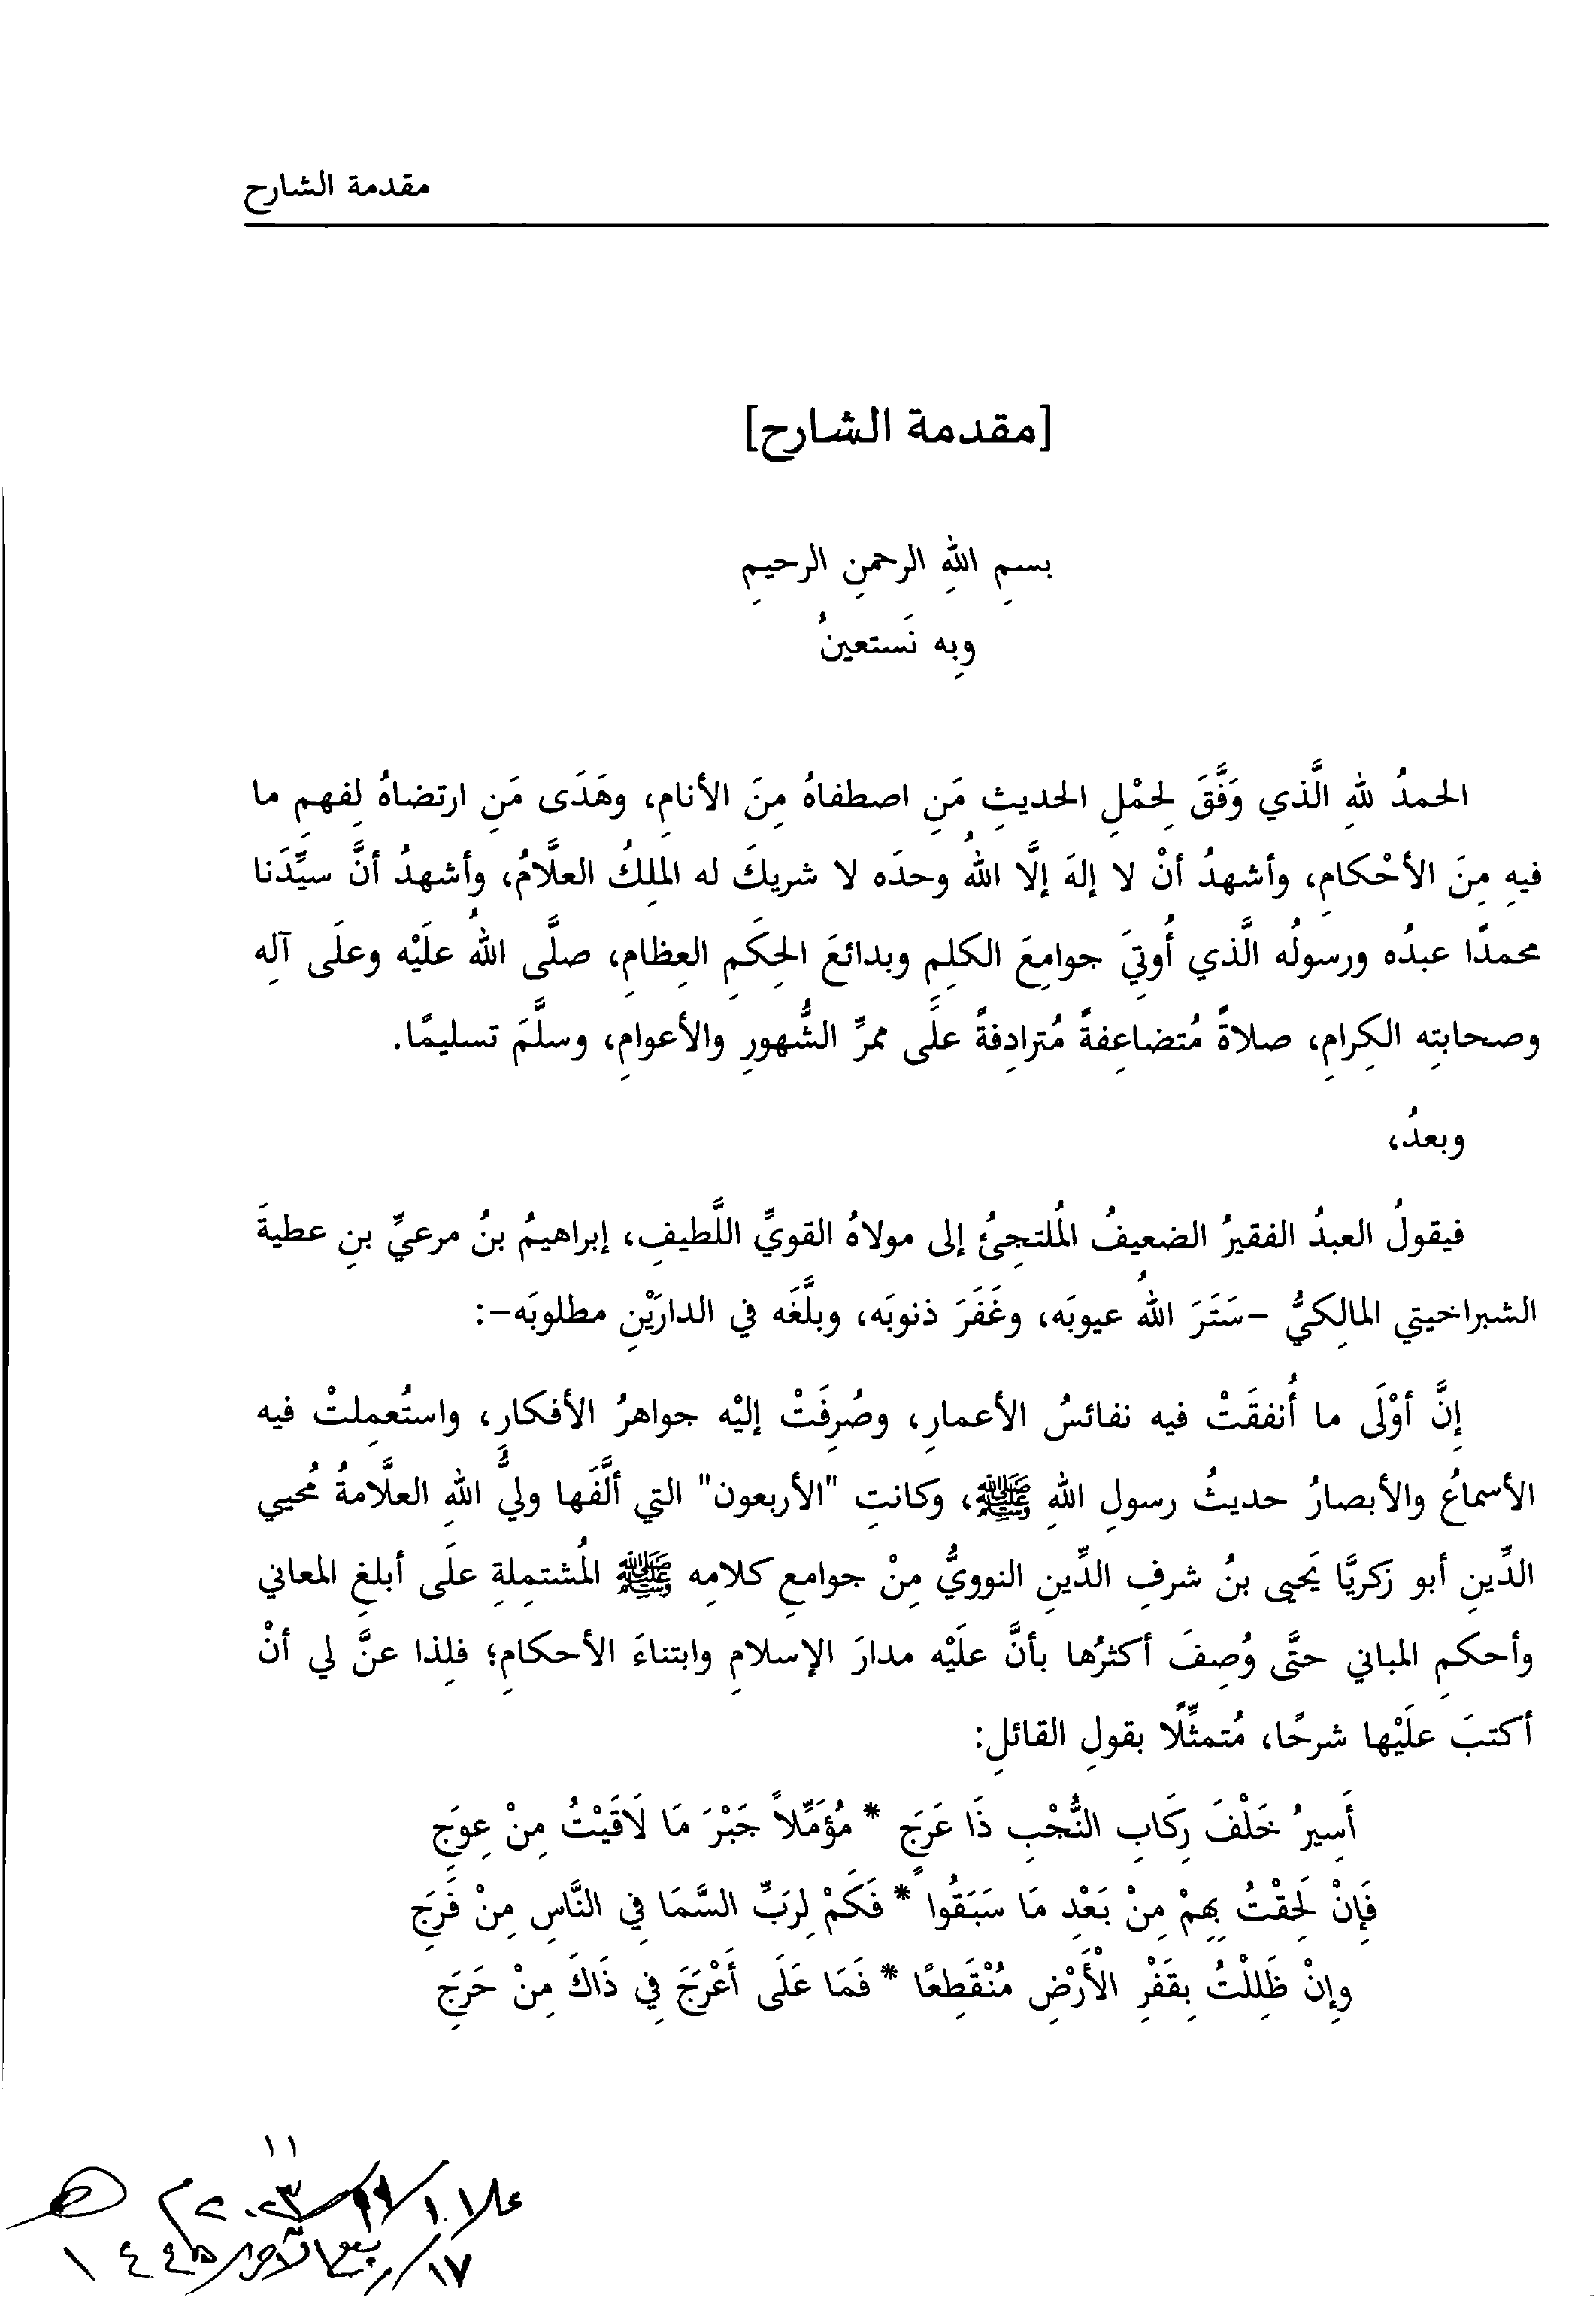 مقدمة الشارح
[مقدمة الشارح]
بسمِ اللهِ الرحمنِ الرحيمِ
وبِه نَستعينُ
الحمدُ للهِ الَّذي وَفَّقَ لِحمْلِ الحديثِ مَنِ اصطفاهُ مِنَ الأنامِ، وهَدَى مَنِ ارتضاهُ لِفهمِ ما
فيهِ مِنَ الأحْكامِ، وأشهدُ أنْ لا إلهَ إلَّا اللهُ وحدَه لا شريكَ له المَلِكُ العلَّامُ، وأشهدُ أنَّ سيِّدَنا
محمدًا عبدُه ورسولُه الَّذي أُوتِيَ جوامِعَ الكلِمِ وبدائعَ الحِكَمِ العِظامِ، صلَّى اللهُ علَيْه وعلَى آلِه
وصحابتِه الكِرامِ، صلاةً مُتضاعِفةً مُترادِفةً علَى ممرِّ الشُّهورِ والأعوامِ، وسلَّمَ تسليمًا.
وبعدُ،
فيقولُ العبدُ الفقيرُ الضعيفُ المُلتجِئُ إلى مولاهُ القويِّ اللَّطيفِ، إبراهيمُ بنُ مرعيِّ بنِ عطيةَ
الشبراخيتي المالِكيُّ -سَتَرَ اللهُ عيوبَه، وغَفَرَ ذنوبَه، وبلَّغَه في الدارَيْنِ مطلوبَه-:
إنَّ أوْلَى ما أُنفقَتْ فيه نفائسُ الأعمارِ، وصُرِفَتْ إليْه جواهرُ الأفكارِ، واستُعمِلتْ فيه
الأسماعُ والأبصارُ حديثُ رسولِ اللهِ ﷺ، وكانتِ "الأربعون" التي ألَّفَها وليُّ اللهِ العلَّامةُ مُحيي
الدِّينِ أبو زكريَّا يَحيى بنُ شرفِ الدِّينِ النوويُّ مِنْ جوامعِ كلامِه ﷺ المُشتمِلةِ علَى أبلغِ المعاني
وأحكمِ المباني حتَّى وُصِفَ أكثرُها بأنَّ علَيْه مدارَ الإسلامِ وابتناءَ الأحكامِ؛ فلِذا عنَّ لي أنْ
أكتبَ علَيْها شرحًا، مُتمثِّلًا بقولِ القائلِ:
أَسِيرُ خَلْفَ رِكَابِ النُّجْبِ ذَا عَرَجٍ * مُؤَمِّلاً جَبْرَ مَا لَاقَيْتُ مِنْ عِوَجِ
فَإِنْ لَحِقْتُ بِهِمْ مِنْ بَعْدِ مَا سَبَقُوا * فَكَمْ لِرَبِّ السَّمَا فِي النَّاسِ مِنْ فَرَجِ
وإِنْ ظَلِلْتُ بِقَفْرِ الْأَرْضِ مُنْقَطِعًا * فَمَا عَلَى أَعْرَجَ فِي ذَاكَ مِنْ حَرَجِ
١١
١٧/ربيع الآخر/١٤٤٥